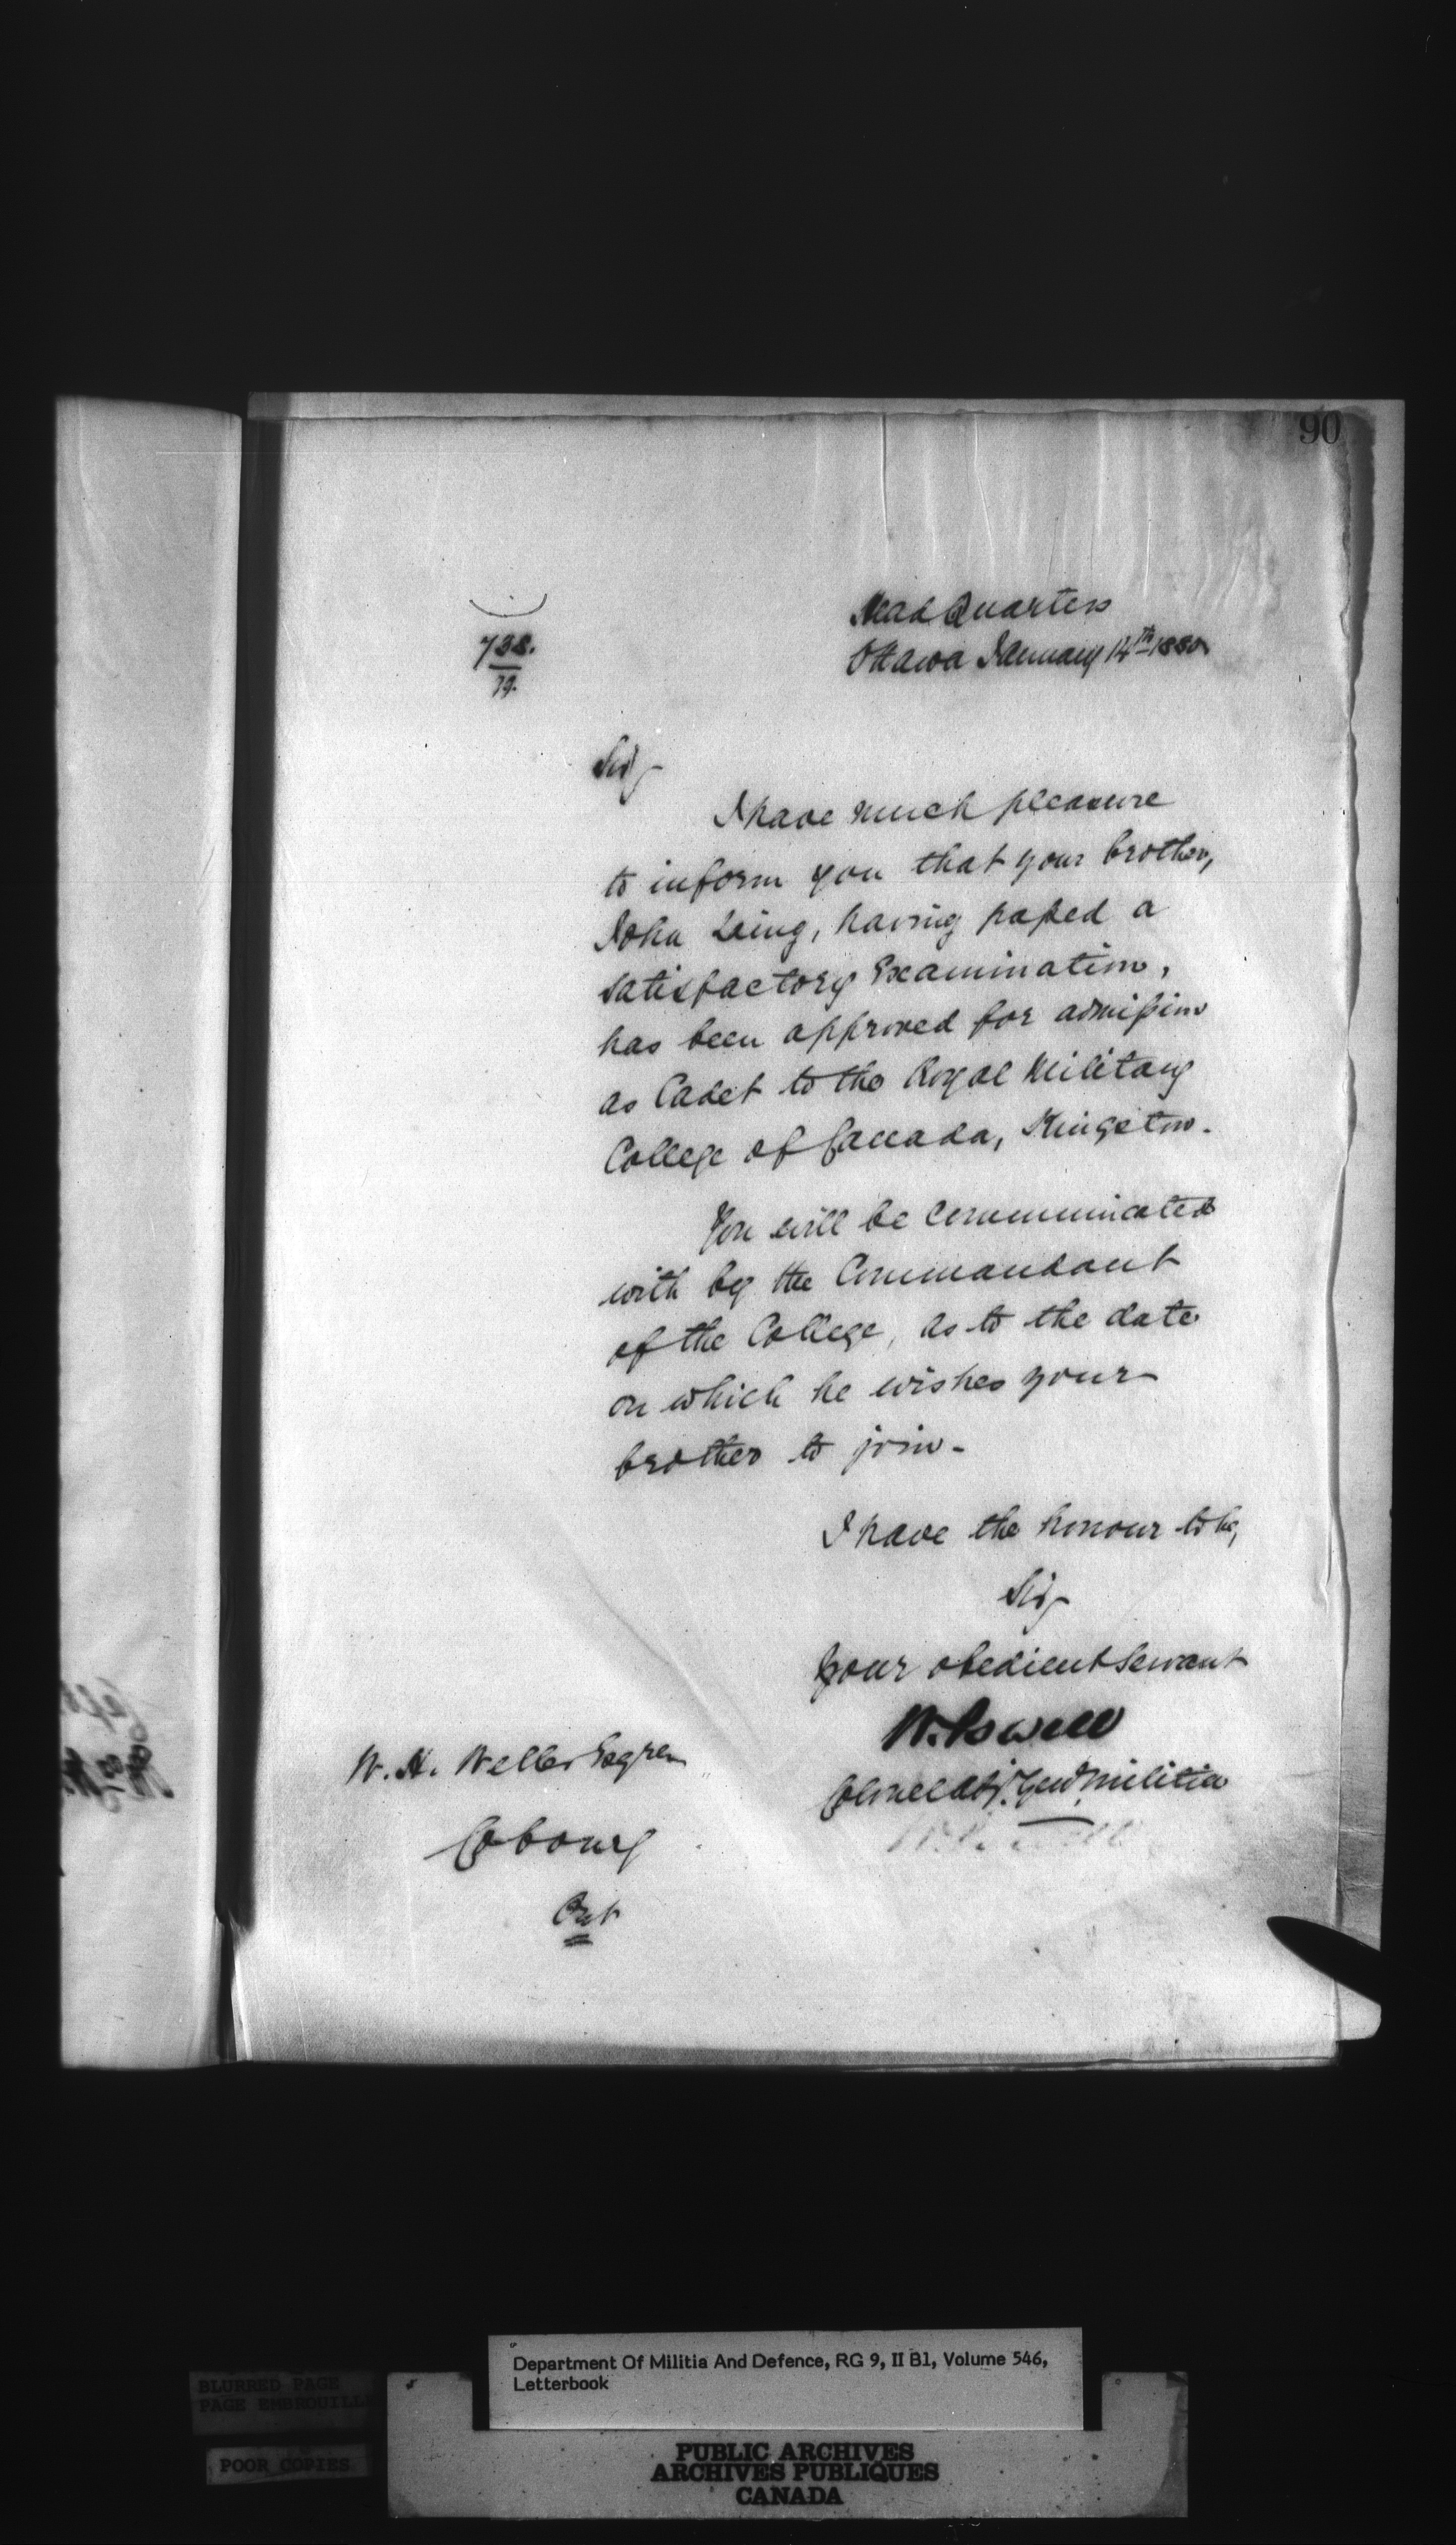 90
738.
79.
Head Quarters
Ottawa January 14th 1880
Sir,
I have much pleasure
to inform you that your brother,
John Laing, having passed a
satisfactory Examination,
has been approved for admission
as Cadet to the Royal Military
College of Canada, Kingston.
You will be communicated
with by the Commandant
of the College, as to the date
on which he wishes your
brother to join -
I have the honour to be,
Sir,
Your obedient Servant
W. Powell
Colonel Adjt. Genl. Militia
W. H. Weller Esqre
Cobourg
Ont
Department Of Militia And Defence, RG 9, II B1, Volume 546,
Letterbook
BLURRED PAGE
PAGE EMBROUILLE
POOR COPIES
PUBLIC ARCHIVES
ARCHIVES PUBLIQUES
CANADA